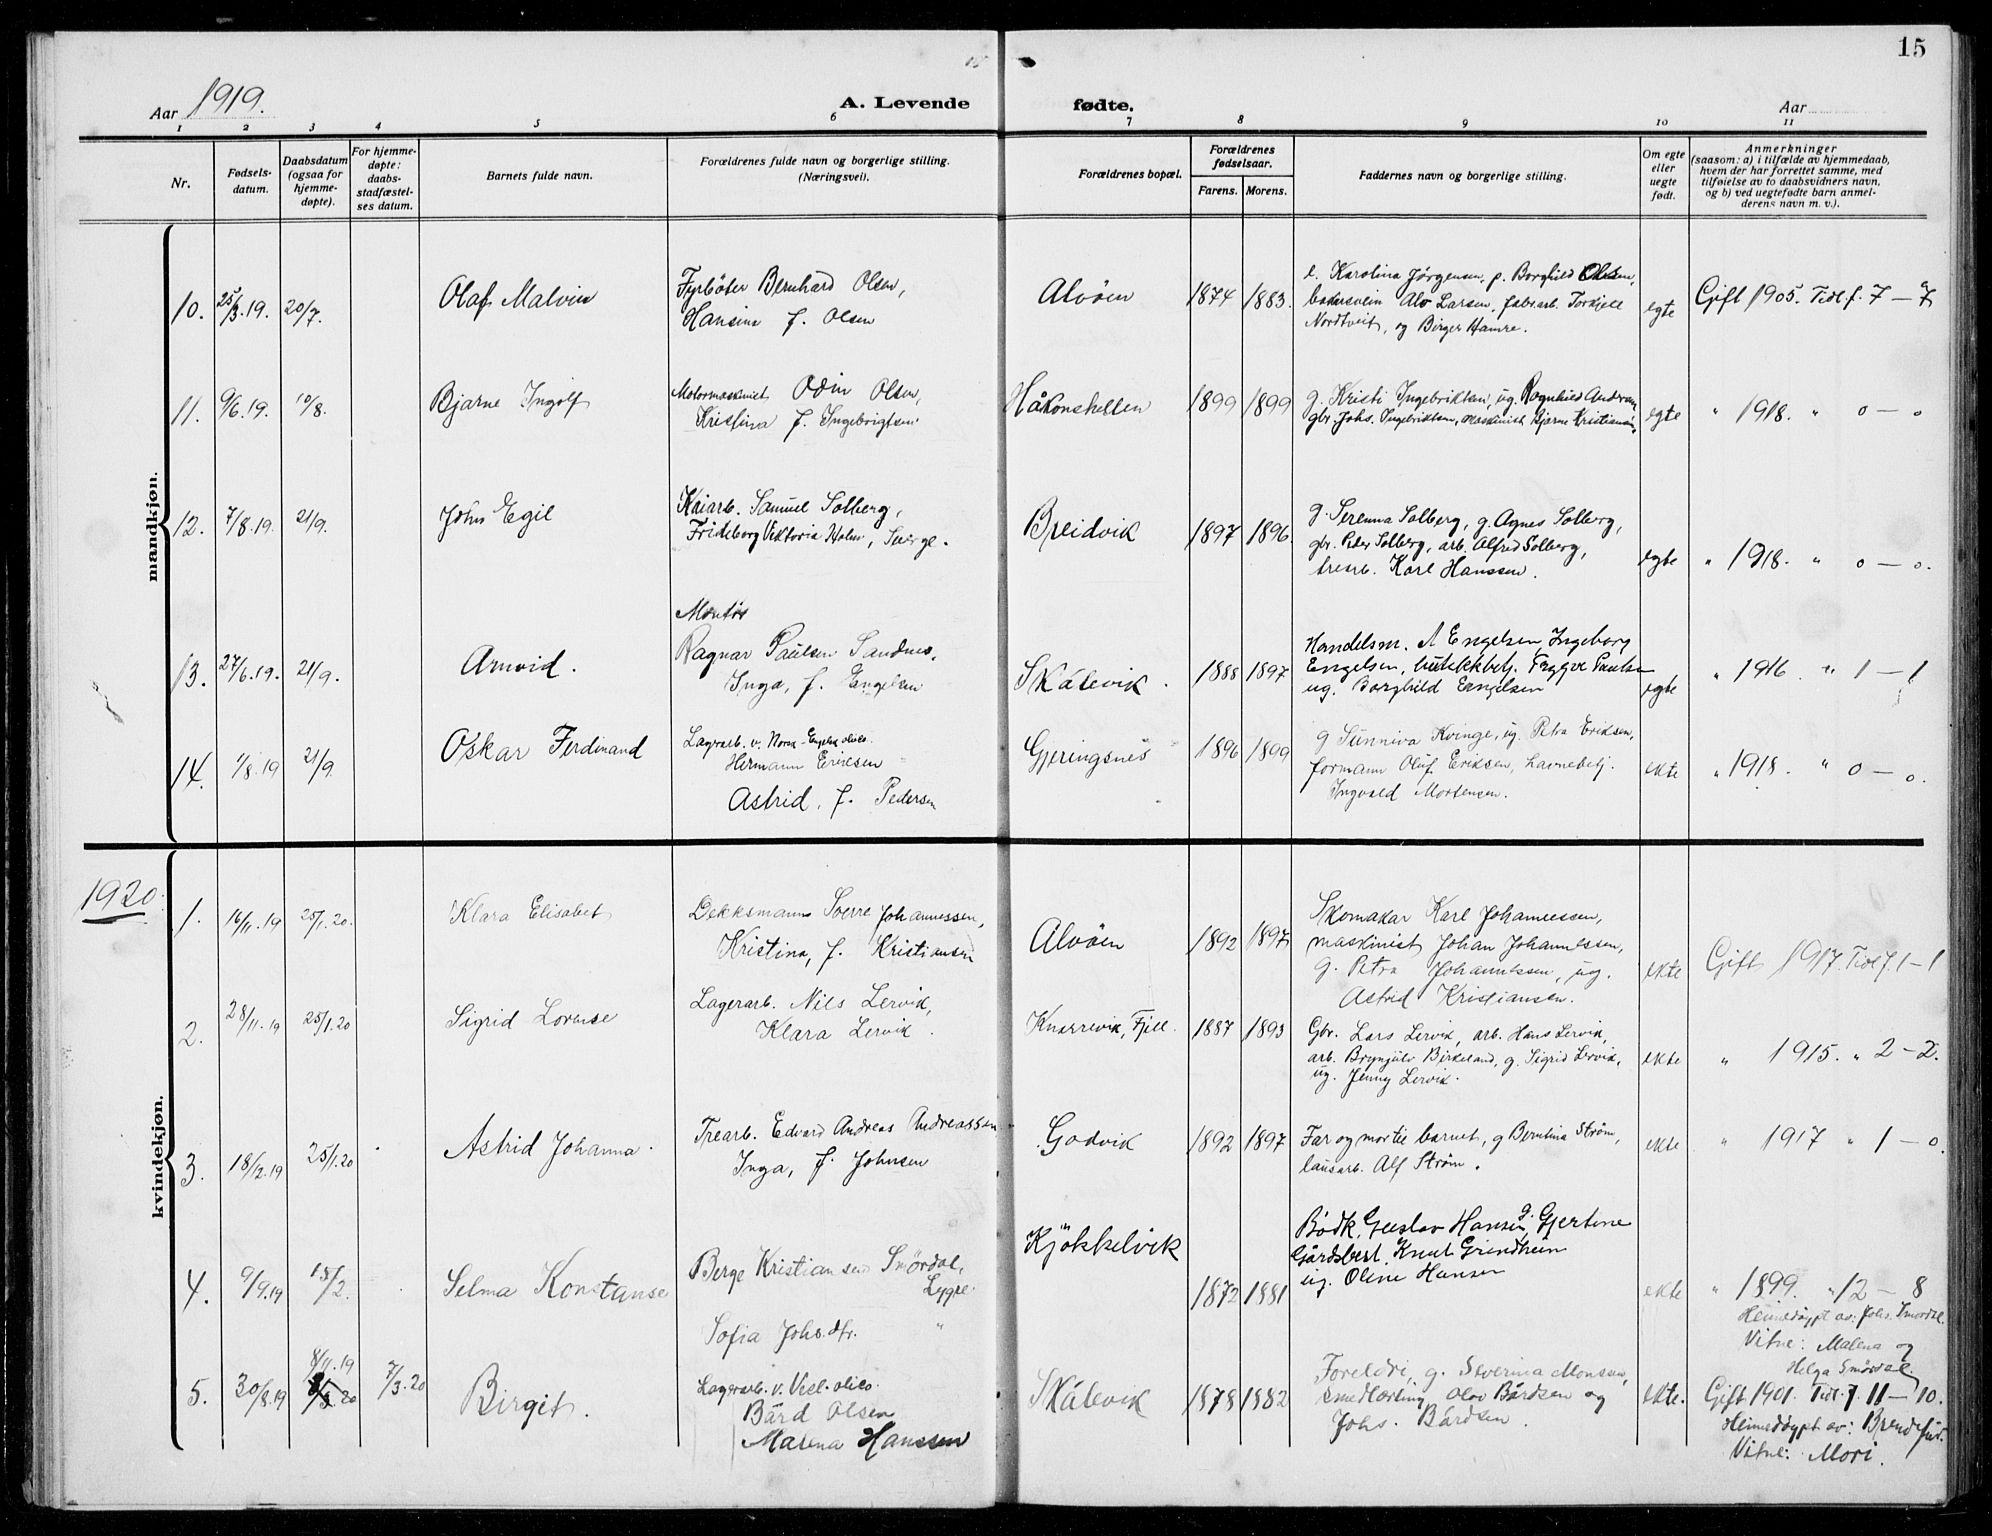 15
Aar 1919.
A. Levende fødte.
Aar
1 2 3 4 5 6 7 8 9 10 11
Nr.
Fødsels-
datum.
Daabsdatum
(ogsaa for
hjemme-
døpte).
For hjemme-
døpte:
daabs-
stadfæstel-
ses datum.
Barnets fulde navn.
Forældrenes fulde navn og borgerlige stilling.
(Næringsvei).
Forældrenes bopæl.
Forældrenes
fødselsaar.
Farens. Morens.
Faddernes navn og borgerlige stilling.
Om egte
eller
uegte
født.
Anmerkninger
(saasom: a) i tilfælde av hjemmedaab,
hvem der har forrettet samme, med
tilføielse av to daabsvidners navn,
og b) ved uegtefødte barn anmel-
derens navn m. v.).
mandkjøn.
10. 25/3.19. 20/7.
Olaf Malvin
Fyrbøter Bernhard Olsen,
Hansine f. Olsen
Alvøen
1874 1883.
e. Karolina Jørgensen, p. Borghild Olsen,
bakersvein Alv Larsen, fabr.arb. Torkjell
Nordtveit, og Birger Hamre.
egte
Gift 1905. Tidl. f. 7 — 7
11. 9/6.19. 10/8.
Bjarne Ingolf
Motormaskinist Odin Olsen,
Kristina f. Ingebrigtsen
Håkonshellen
1899 1899
g. Kristi Ingebriktsen, ug. Ragnhild Andersen
gbr. Johs. Ingebriktsen, maskinist Bjarne Kristiansen.
egte
" 1918. " 0 — 0
12. 7/8.19. 21/9.
John Egil
Kaiarb. Samuel Solberg,
Frideborg Viktoria Holm, Sverge.
Breidvik
1897 1896.
g. Serenna Solberg, g. Agnes Solberg,
gbr. Peder Solberg, arb. Alfred Solberg,
trearb. Karl Hanssen.
egte
" 1918. " 0 — 0.
13. 27/6.19. 21/9.
Arnvid.
Montør
Ragnar Paulsen Sandnes,
Inga, f. Engelsen
Skålevik.
1888 1897
Handelsm. A Engelsen, Ingeborg
Engelsen, butikkbetj. Trygve Paulsen
ug. Borghild Engelsen
egte
" 1916. " 1 — 1
14. 1/8.19 21/9.
Oskar Ferdinand
Lagerarb. v. Norsk-Engelsk olico.
Hermann Eriksen
Astrid, f. Pedersen
Gjeringsnes
1896 1899
g Sunniva Kvinge, ug. Petra Eriksen,
formann Oluf Eriksen, havnebetj.
Ingvald Mortensen.
ekte
" 1918. " 0 — 0.
1920.
kvindekjøn.
1. 16/11.19 25/1.20.
Klara Elisabet
Dekksmann Sverre Johannessen,
Kristina, f. Kristiansen
Alvøen
1892 1897
Skomakar Karl Johannessen,
maskinist Johan Johannessen,
g. Petra Johannessen, ug.
Astrid Kristiansen.
ekte
Gift 1917. Tidl. f. 1 — 1
2. 28/11.19 25/1.20
Sigrid Lovense
Lagerarb. Nils Lervik,
Klara Lervik.
Knarrevik, Fjell.
1887 1893
Gbr. Lars Lervik, arb. Hans Lervik,
arb. Brynjulv Birkeland, g. Sigrid Lervik,
ug. Jenny Lervik.
ekte
" 1915. " 2 — 2.
3. 18/12.19 25/1.20
Astrid Johanna.
Trearb. Edvard Andreas Andreassen
Inga, f. Johnsen
Godvik
1892 1897
Far og mor til barnet, g Berntina Strøm,
lausarb. Alf Strøm.
ekte
" 1917 " 1 — 0.
4. 9/9.19 15/2.
Selma Konstanse
Berge Kristiansen Smördal,
Lygre.
Sofia Johs.dtr. "
Kjökkelvik
1872 1881
Bödk. Gustav Hansen, g. Gjertine
Gårdsbest. Knut Grindheim
ug. Oline Hansen
ekte
" 1899. " 12 — 8
Heimedøypt av: Johs. Smørdal.
Vitne: Malena og
Helga Smørdal.
5. 30/8.19 8/11.19 7/3.20
Birgit.
Lagerarb. v. Vest. olico.
Bård Olsen
Malena Hanssen
Skålevik
1878 1882
Foreldri, g. Severina Monsen,
smedlærling Olav Bårdsen og
Johs. Bårdsen.
ekte.
Gift 1901. Tidl. f. 11 — 10.
Heimedøypt av:
Vitne: Mori.